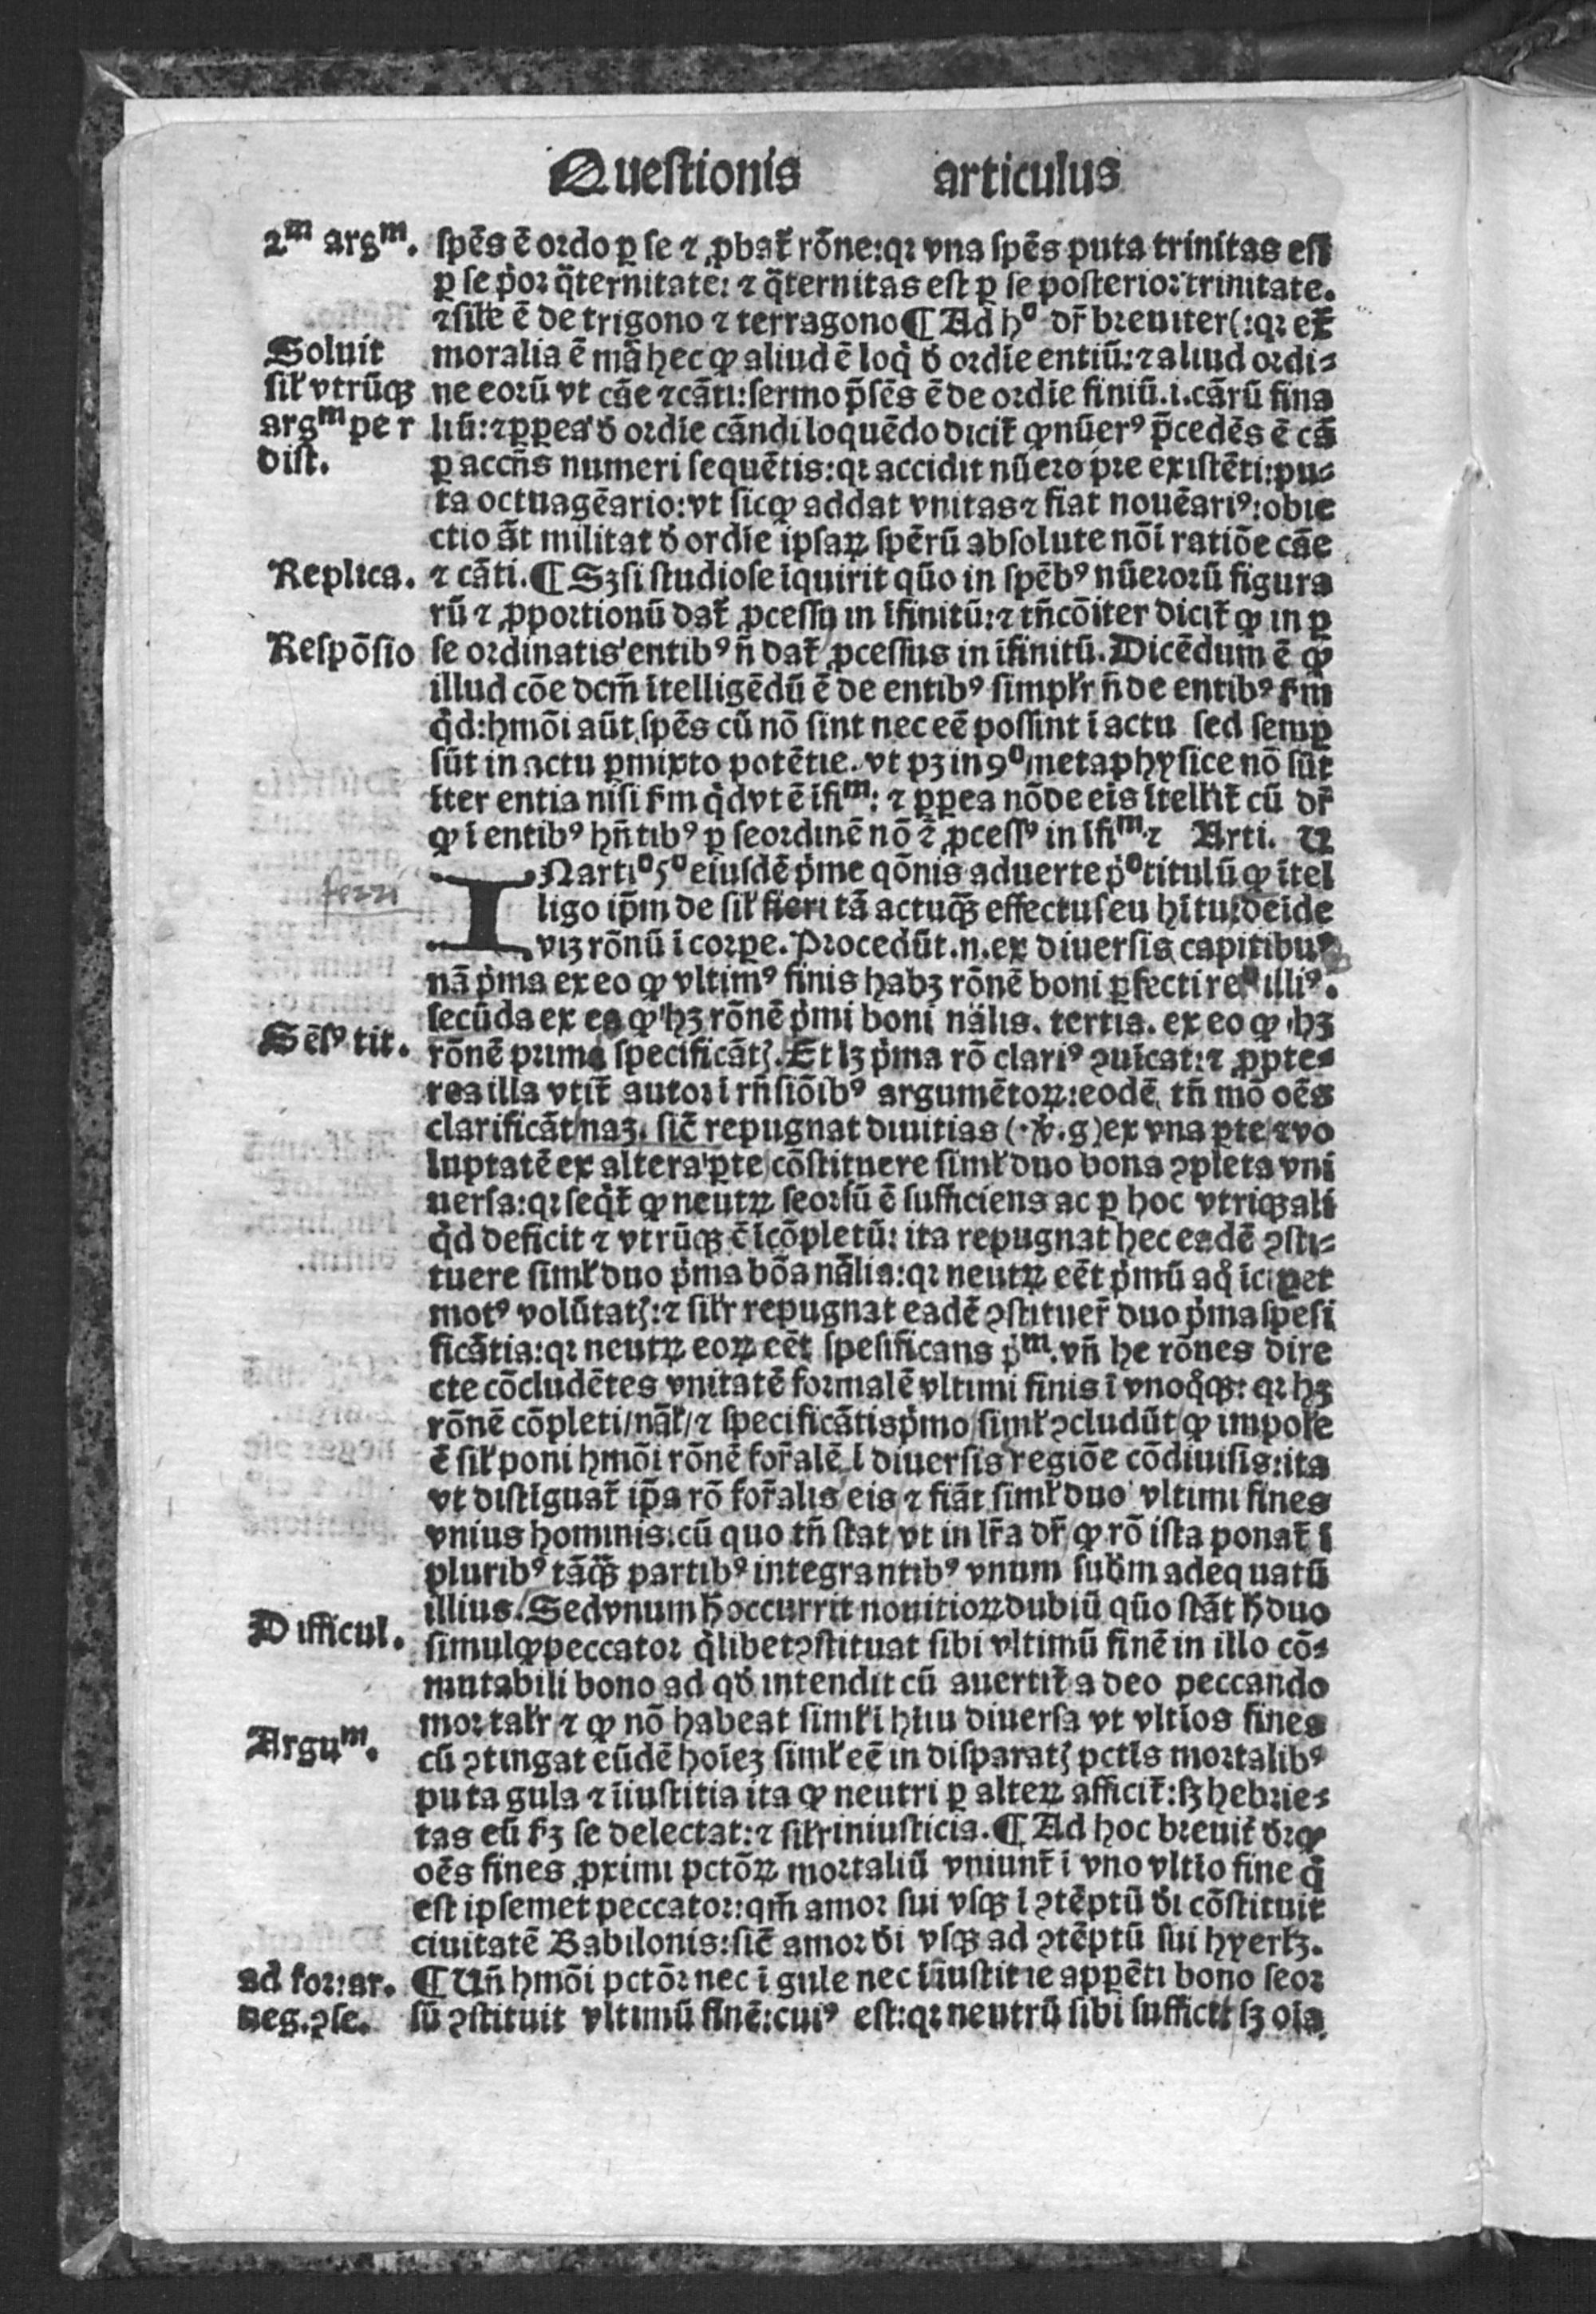 Questionis articulus
2ᵐ argᵐ.
spēs ē ordo ꝑ se ⁊ ꝓbať rōne: qꝛ vna spēs puta trinitas est
ꝑ se p̓or q̄ternitate: ⁊ q̄ternitas est ꝑ se posterior trinitate.
⁊ siłe ē de trigono ⁊ terragono ¶ Ad hᵒ dr̄ breuiter (: qꝛ
Soluit
moralia ē mā hec ꝙ aliud ē loq̓ đ ordīe entiū: ⁊ aliud ordi-
sił vtrūqꝫ
ne eorū vt cāe ⁊ cāti: sermo p̄sēs ē de ordīe finiū .i. cārū fina
argᵐ per
liū: ⁊ ꝑpea đ ordīe cāndi loquēdo diciť ꝙ nūerꝰ p̄cedēs ē cā
dist.
ꝑ accn̄s numeri sequētis: qꝛ accidit nūero p̓re existēti: pu-
ta octuagēario: vt sicꝙ addat vnitas ⁊ fiat nouēariꝰ: obie
ctio āt militat đ ordīe ipsaꝝ spērū absolute nō ī ratiōe cāe
Replica.
⁊ cāti. ¶ Sꝫ si studiose īquirit qūo in spēbꝰ nūerorū figura
rū ⁊ ꝓportionū dať ꝓcessꝰ in īfinitū: ⁊ tn̄ cōiter diciť ꝙ in ꝑ
Respōsio
se ordinatis entibꝰ n̄ dať ꝓcessus in īfinitū. Dicēdum ē ꝙ
illud cōe dcm̄ ītelligēdū ē de entibꝰ simplr̄ n̄ de entibꝰ ẜm
q̓d: hmōi aūt spēs cū nō sint nec eē possint ī actu sed semꝑ
sūt in actu ꝑmixto potētie. vt pꝫ in 9ᵒ metaphysice nō sūt
īter entia nisi ẜm q̓d vt ē īfiᵐ: ⁊ ꝑpea nō de eis ītelliť cū dr̄
ꝙ ī entibꝰ hn̄tibꝰ ꝑ se ordinē nō ē ꝓcessꝰ in īfiᵐ. ⁊ Arti.
ferri
IN artiᵒ 5ᵒ eiusdē p̓me qōnis aduerte p̓ᵒ titulū ꝙ ītel
ligo ip̄m de sił fieri tā actu qꝫ effectu seu hītu: deīde
vīꝫ rōnū ī corꝑe. Procedūt .n. ex diuersis capitibus
nā p̓ma ex eo ꝙ vltimꝰ finis habꝫ rōnē boni ꝑfecti illiꝰ.
secūda ex eo ꝙ hꝫ rōnē p̓mi boni nālis. tertia. ex eo ꝙ hꝫ
Sēsꝰ tit.
rōnē primo specificātꝭ. Et lꝫ p̓ma rō clariꝰ ꝯuīcat: ⁊ ꝓpte-
rea illa vtiť autor ī rn̄siōibꝰ argumētoꝝ: eodē tn̄ mō oēs
clarificāt naꝫ. sic̄ repugnat diuitias (.v̄.g) ex vna ꝑte ⁊ vo
luptatē ex altera ꝑte cōstituere simł duo bona ꝯpleta vni
uersa: qꝛ seq̓ť ꝙ neutꝝ seorsū ē sufficiens ac ꝑ hoc vtriqꝫ ali
q̓d deficit ⁊ vtrūqꝫ ē īcōpletū: ita repugnat hec eadē ꝯsti-
tuere simł duo p̓ma bōa nālia: qꝛ neutꝝ eēt p̓mū a q̓ īciꝑet
motꝰ volūtatꝭ: ⁊ siłr repugnat eadē ꝯstituer̄ duo p̓ma spesi
ficātia: qꝛ neutꝝ eoꝝ eēt spesificans p̓ᵐ. vn̄ he rōnes dire
cte cōcludētes vnitatē formalē vltimi finis ī vnoq̓qꝫ: qꝛ hꝫ
rōnē cōpleti / nāł / ⁊ specificātis p̓mo / simł ꝯcludūt ꝙ impole
ē sił poni hmōi rōnē for̄alē ī diuersis regiōe cōdiuisis: ita
vt distīguať ip̄a rō for̄alis eis ⁊ fiāt simł duo vltimi fines
vnius hominis: cū quo tn̄ stat vt in lr̄a dr̄ ꝙ rō ista ponať ī
pluribꝰ tāqꝫ partibꝰ integrantibꝰ vnum subm adequatū
illius. Sed vnum h̄ occurrit nouitioꝝ dubiū qūo stāt h̄ duo
Difficul.
simul ꝙ peccator q̓libet ꝯstituat sibi vltimū finē in illo cō-
mutabili bono ad qđ intendit cū auertiť a deo peccando
mortałr ⁊ ꝙ nō habeat simł ī hītu diuersa vt vltīos fines
Arguᵐ.
cū ꝯtingat eūdē hoīeꝫ simł eē in disparatꝭ pctīs mortalibꝰ
puta gula ⁊ īiustitia ita ꝙ neutri ꝑ alteꝝ afficiť: sꝫ hebrie-
tas eū ẜꝫ se delectat: ⁊ siłr iniusticia. ¶ Ad hoc breuiť đꝛ ꝙ
oēs fines ꝓximi pctōꝝ mortaliū vniunť ī vno vltīo fine q̓
est ipsemet peccator: qm̄ amor sui vsqꝫ ī ꝯtēptū đi cōstituit
ciuitatē Babilonis: sic̄ amor đi vsqꝫ ad ꝯtēptū sui hyerłꝫ.
ad for: ar.
¶ Un̄ hmōi pctōr nec ī gule nec īiustitie appēti bono seor
neg. ꝯse.
sū ꝯstituit vltimū finē: cuiꝰ est: qꝛ neutrū sibi sufficit sꝫ oīa